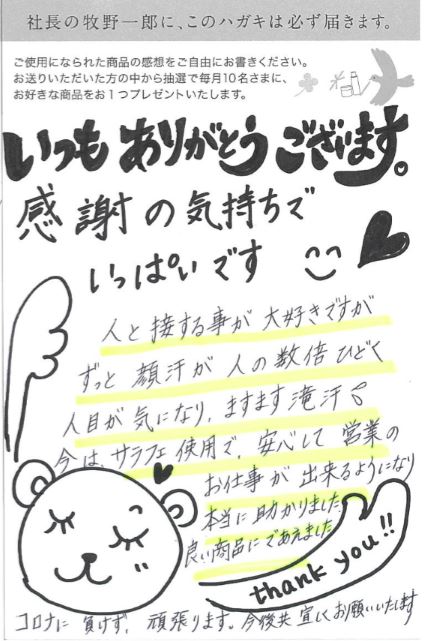 社長の牧野一郎に、このハガキは必ず届きます。
ご使用になられた商品の感想をご自由にお書きください。
お送りいただいた方の中から抽選で毎月10名さまに、
お好きな商品をお1つプレゼントいたします。
いつもありがとうございます。
感謝の気持ちで
いっぱいです
人と接する事が大好きですが
ずっと顔汗が人の数倍ひどく
人目が気になり、ますます滝汗
今は、サラフェ使用で、安心して営業の
お仕事が出来るようになり
本当に助かりました
良い商品にであえました
thank you!!
コロナに負けず、頑張ります。今後共宜しくお願いいたします